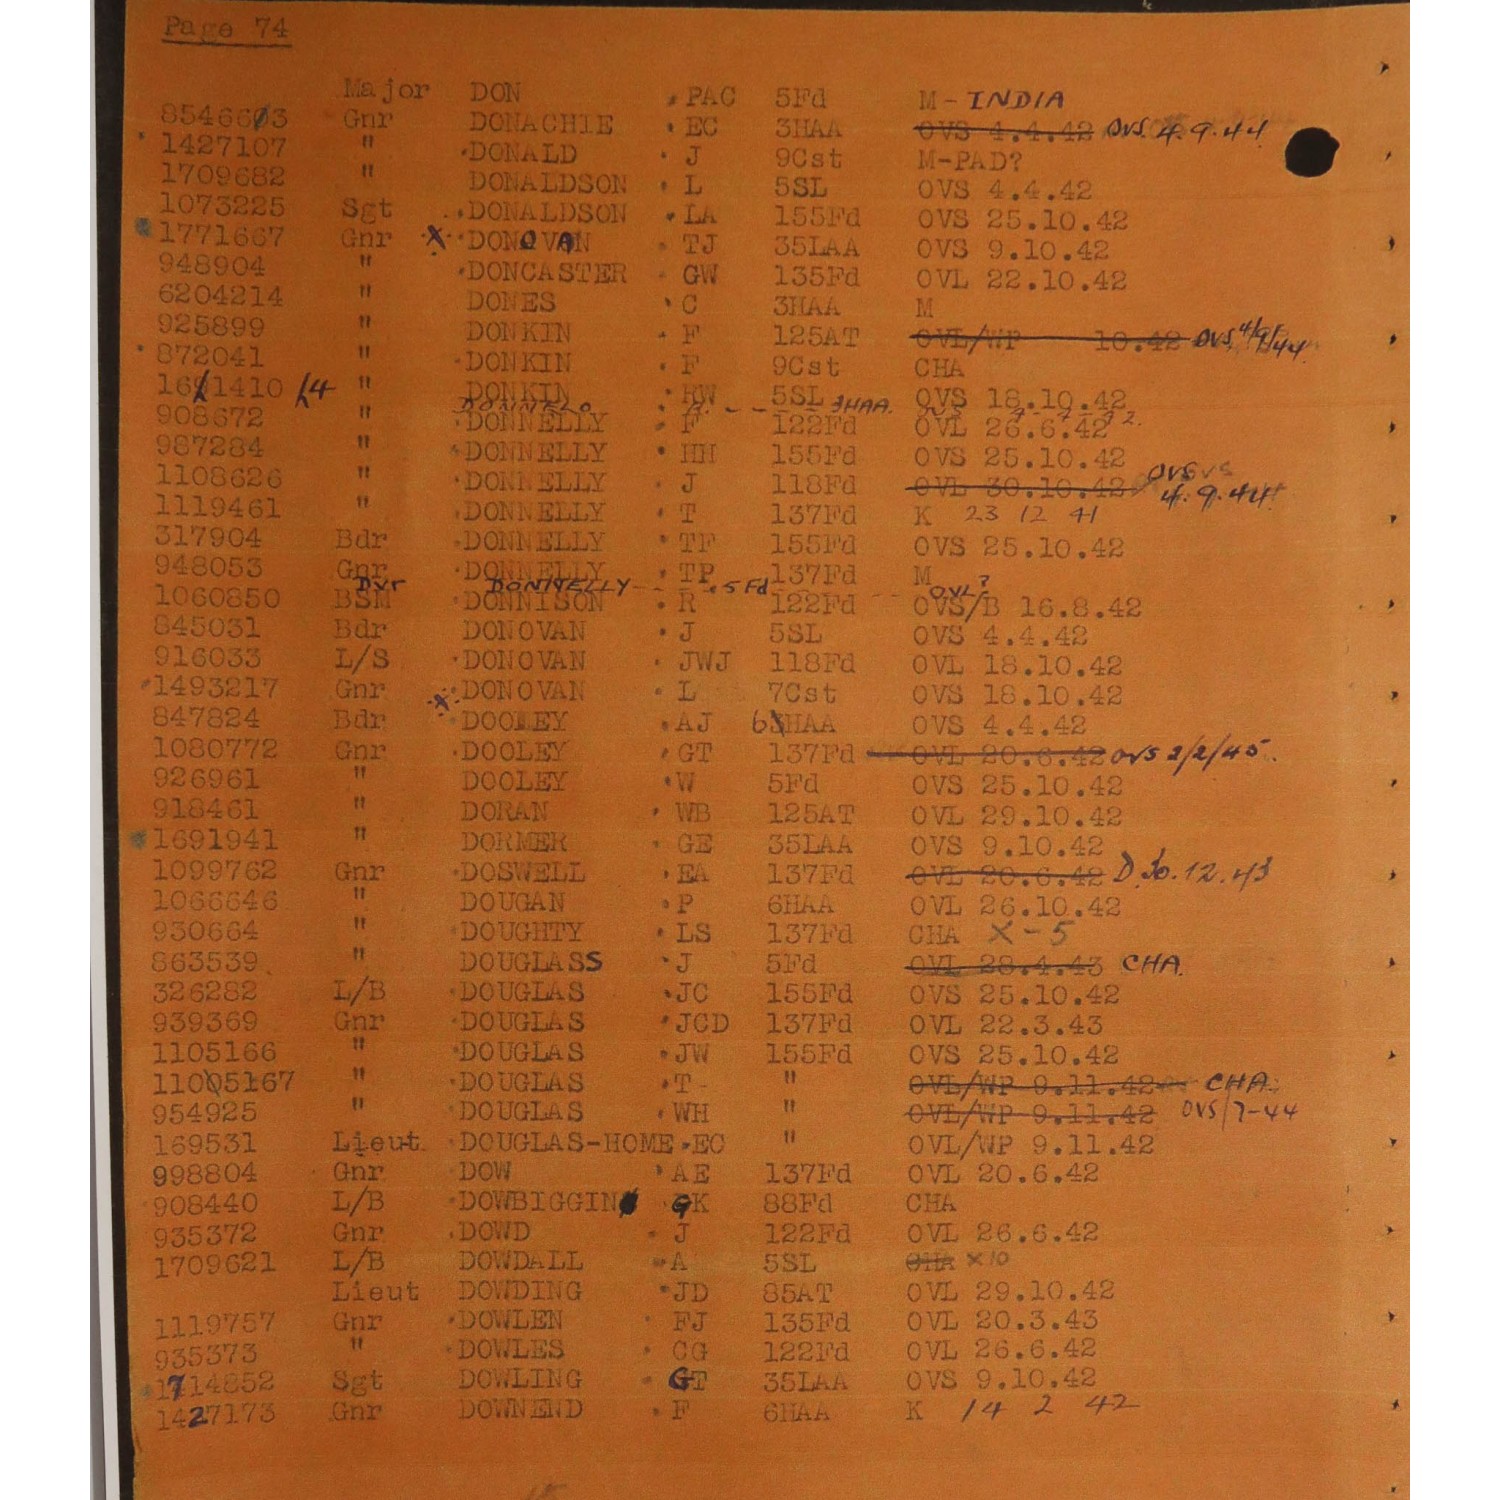 Page 74
Major DON PAC 5Fd M - INDIA
8546603 Gnr DONACHIE EC 3HAA OVS 4.4.42 OVS. 4.9.44
1427107 " DONALD J 9Cst M-PAD?
1709682 " DONALDSON L 5SL OVS 4.4.42
1073225 Sgt DONALDSON LA 155Fd OVS 25.10.42
1771667 Gnr X DONOVAN TJ 35LAA OVS 9.10.42
948904 " DONCASTER GW 135Fd OVL 22.10.42
6204214 " DONES C 3HAA M
925899 " DONKIN F 125AT OVL/WP 10.42 OVS 4/9/44
872041 " DONKIN F 9Cst CHA
1611410 /4 " DONKIN RW 5SL OVS 18.10.42
DONNELO 3HAA. OVS
908672 " DONNELLY F 122Fd OVL 26.6.42
987284 " DONNELLY HH 155Fd OVS 25.10.42
1108626 " DONNELLY J 118Fd OVL 30.10.42 OVS 4.9.44
1119461 " DONNELLY T 137Fd K 23 12 41
317904 Bdr DONNELLY TF 155Fd OVS 25.10.42
948053 Gnr DONNELLY TP 137Fd M
Dvr DONNELLY - - . 5Fd - - OVL?
1060850 BSM DONNISON R 122Fd OVS/B 16.8.42
845031 Bdr DONOVAN J 5SL OVS 4.4.42
916033 L/S DONOVAN JWJ 118Fd OVL 18.10.42
1493217 Gnr X DONOVAN L 7Cst OVS 18.10.42
847824 Bdr DOOLEY AJ 6HAA OVS 4.4.42
1080772 Gnr DOOLEY GT 137Fd OVL 20.6.42 OVS 2/2/45.
926961 " DOOLEY W 5Fd OVS 25.10.42
918461 " DORAN WB 125AT OVL 29.10.42
1691941 " DORMER GE 35LAA OVS 9.10.42
1099762 Gnr DOSWELL EA 137Fd OVL 20.6.42 D. 12.43
1066646 " DOUGAN P 6HAA OVL 26.10.42
930664 " DOUGHTY LS 137Fd CHA X - 5
863539 " DOUGLASS J 5Fd OVL 28.4.43 CHA.
326282 L/B DOUGLAS JC 155Fd OVS 25.10.42
939369 Gnr DOUGLAS JCD 137Fd OVL 22.3.43
1105166 " DOUGLAS JW 155Fd OVS 25.10.42
1105167 " DOUGLAS T " OVL/WP 9.11.42 CHA.
954925 " DOUGLAS WH " OVL/WP 9.11.42 OVS/7-44
169531 Lieut DOUGLAS-HOME EC " OVL/WP 9.11.42
998804 Gnr DOW AE 137Fd OVL 20.6.42
908440 L/B DOWBIGGIN GK 88Fd CHA
935372 Gnr DOWD J 122Fd OVL 26.6.42
1709621 L/B DOWDALL A 5SL CHA X10
Lieut DOWDING JD 85AT OVL 29.10.42
1119757 Gnr DOWLEN FJ 135Fd OVL 20.3.43
935373 " DOWLES CG 122Fd OVL 26.6.42
1714852 Sgt DOWLING GT 35LAA OVS 9.10.42
1427173 Gnr DOWNEND F 6HAA K 14 2 42